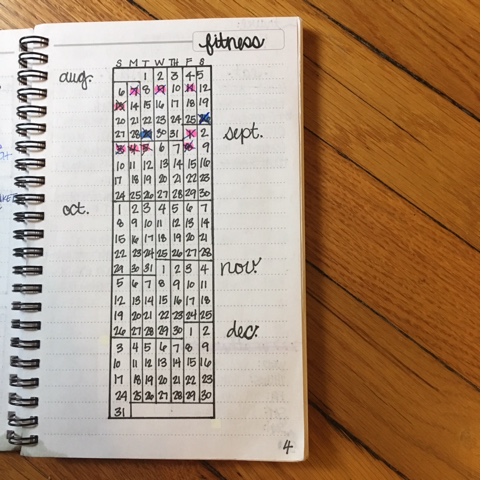 fitness
S M T W TH F S
aug. 1 2 3 4 5
6 7 8 9 10 11 12
13 14 15 16 17 18 19
20 21 22 23 24 25
27 28 30 31 1 2 sept.
3 4 5 6 7 8 9
10 11 12 13 14 15 16
17 18 19 20 21 22 23
24 25 26 27 28 29 30
oct. 1 2 3 4 5 6 7
8 9 10 11 12 13 14
15 16 17 18 19 20 21
22 23 24 25 26 27 28
29 30 31 1 2 3 4 nov.
5 6 7 8 9 10 11
12 13 14 15 16 17 18
19 20 21 22 23 24 25
26 27 28 29 30 1 2 dec.
3 4 5 6 7 8 9
10 11 12 13 14 15 16
17 18 19 20 21 22 23
24 25 26 27 28 29 30
31
4